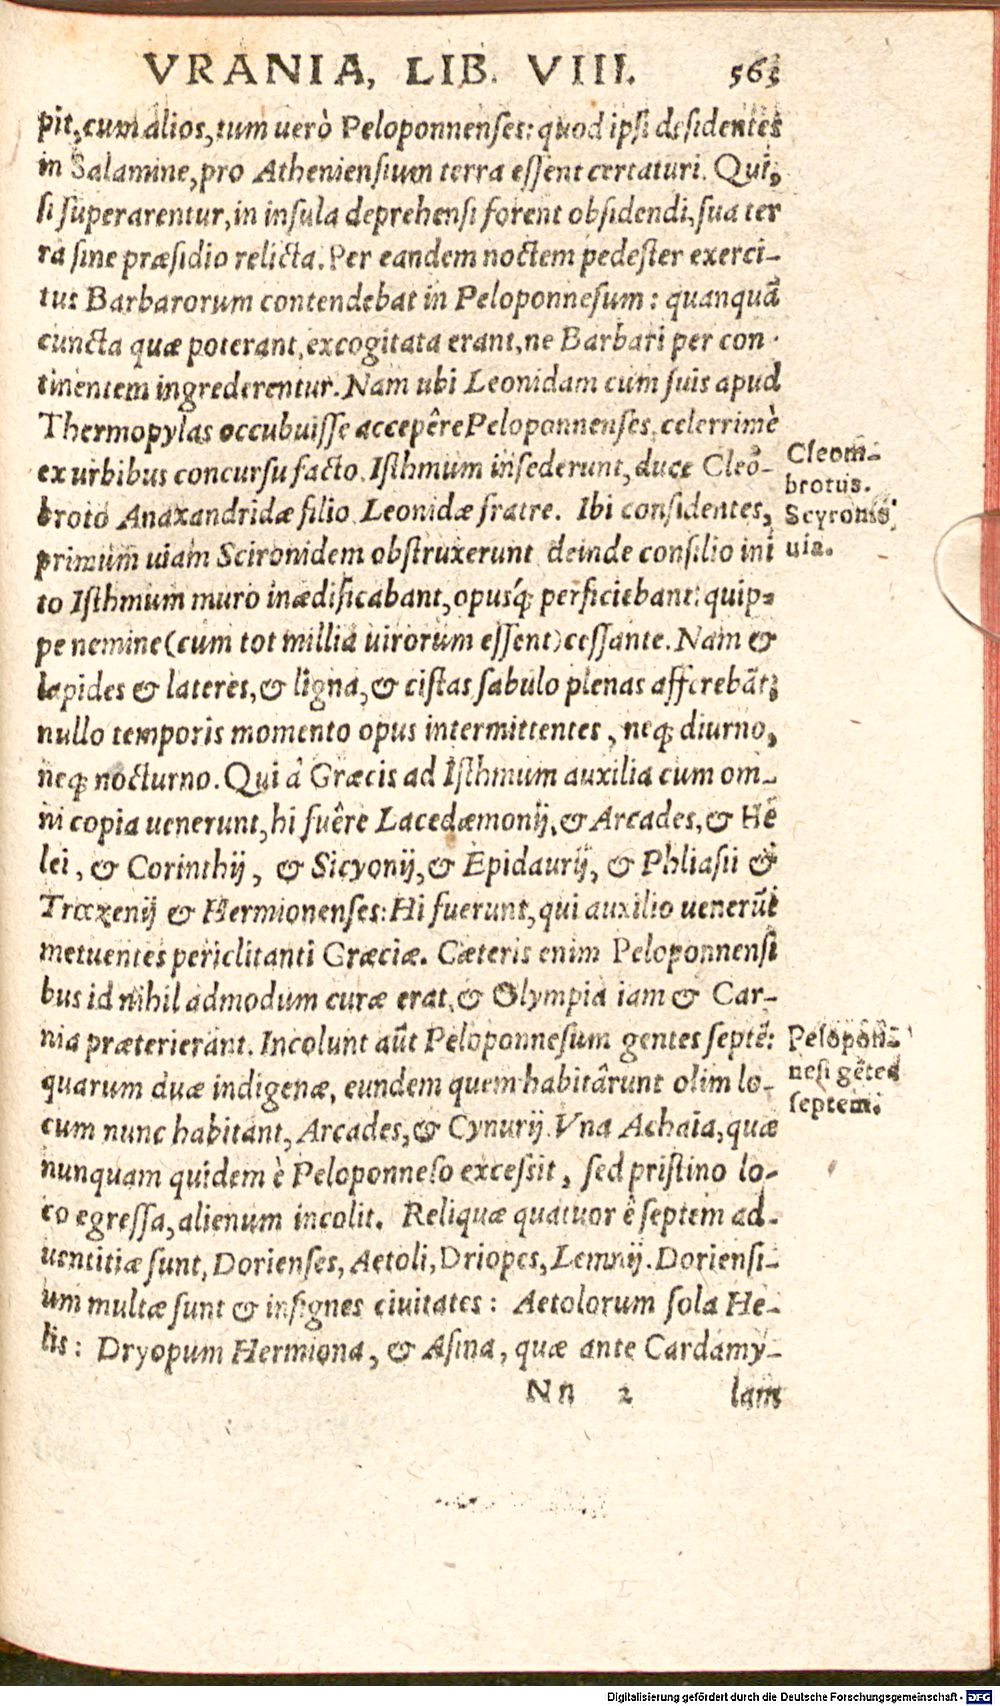 VRANIA, LIB. VIII. 563
pit, cum alios, tum uerò Peloponnenses: quod ipsi desidentes
in Salamine, pro Atheniensium terra essent certaturi. Qui,
si superarentur, in insula deprehensi forent obsidendi, sua ter
ra sine præsidio relicta. Per eandem noctem pedester exerci-
tus Barbarorum contendebat in Peloponnesum: quanquā
cuncta quæ poterant, excogitata erant, ne Barbari per con-
tinentem ingrederentur. Nam ubi Leonidam cum suis apud
Thermopylas occubuisse accepêre Peloponnenses, celerrimè
ex urbibus concursu facto, Isthmum insederunt, duce Cleō-
broto Anaxandridæ filio, Leonidæ fratre. Ibi considentes,
primum uiam Scironidem obstruxerunt deinde consilio ini
to Isthmum muro inædificabant, opusq́; perficiebant: quip-
pe nemine (cum tot millia uirorum essent) cessante. Nam &
lapides & lateres, & ligna, & cistas sabulo plenas afferebāt:
nullo temporis momento opus intermittentes, neq; diurno,
neq; nocturno. Qui â Græcis ad Isthmum auxilia cum om-
ni copia uenerunt, hi fuêre Lacedæmonij, & Arcades, & He
lei, & Corinthij, & Sicyonij, & Epidaurij, & Phliasii &
Trœzenij & Hermionenses: Hi fuerunt, qui auxilio uenerūt
metuentes periclitanti Græciæ. Cæteris enim Peloponnensi
bus id nihil admodum curæ erat, & Olympia iam & Car-
nia præterierant. Incolunt aūt Peloponnesum gentes septē:
quarum duæ indigenæ, eundem quem habitârunt olim lo-
cum nunc habitant, Arcades, & Cynurij. Vna Achaia, quæ
nunquam quidem è Peloponneso excessit, sed pristino lo-
co egressa, alienum incolit. Reliquæ quatuor è septem ad-
uentitiæ sunt, Dorienses, Aetoli, Driopes, Lemnij. Doriensi-
um multæ sunt & insignes ciuitates: Aetolorum sola He-
lis: Dryopum Hermiona, & Asina, quæ ante Cardamy-
Nn 2 lam
Cleom-
brotus.
Scyronis
uia.
Pelopon-
nesi gētes
septem.
Digitalisierung gefördert durch die Deutsche Forschungsgemeinschaft - DFG